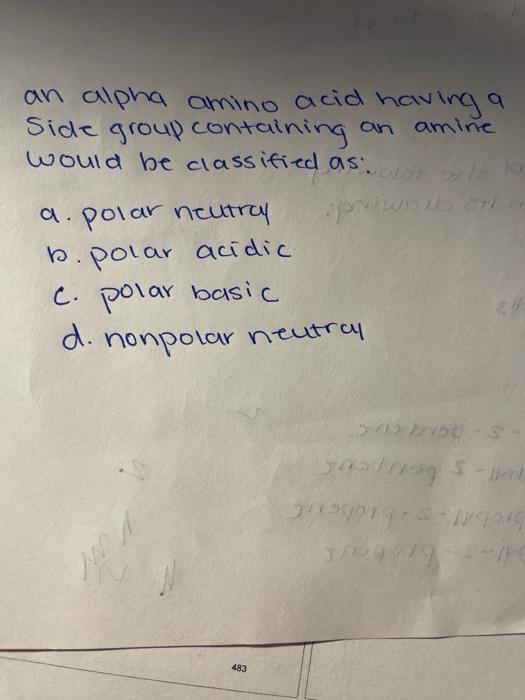 an alpha amino acid having a
Side group containing an amine
would be classified as:
a. polar neutral
b. polar acidic
c. polar basic
d. nonpolar neutral
483